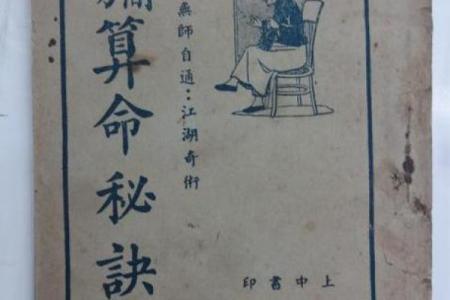 無師自通：江湖奇術
算命秘訣
上中書印